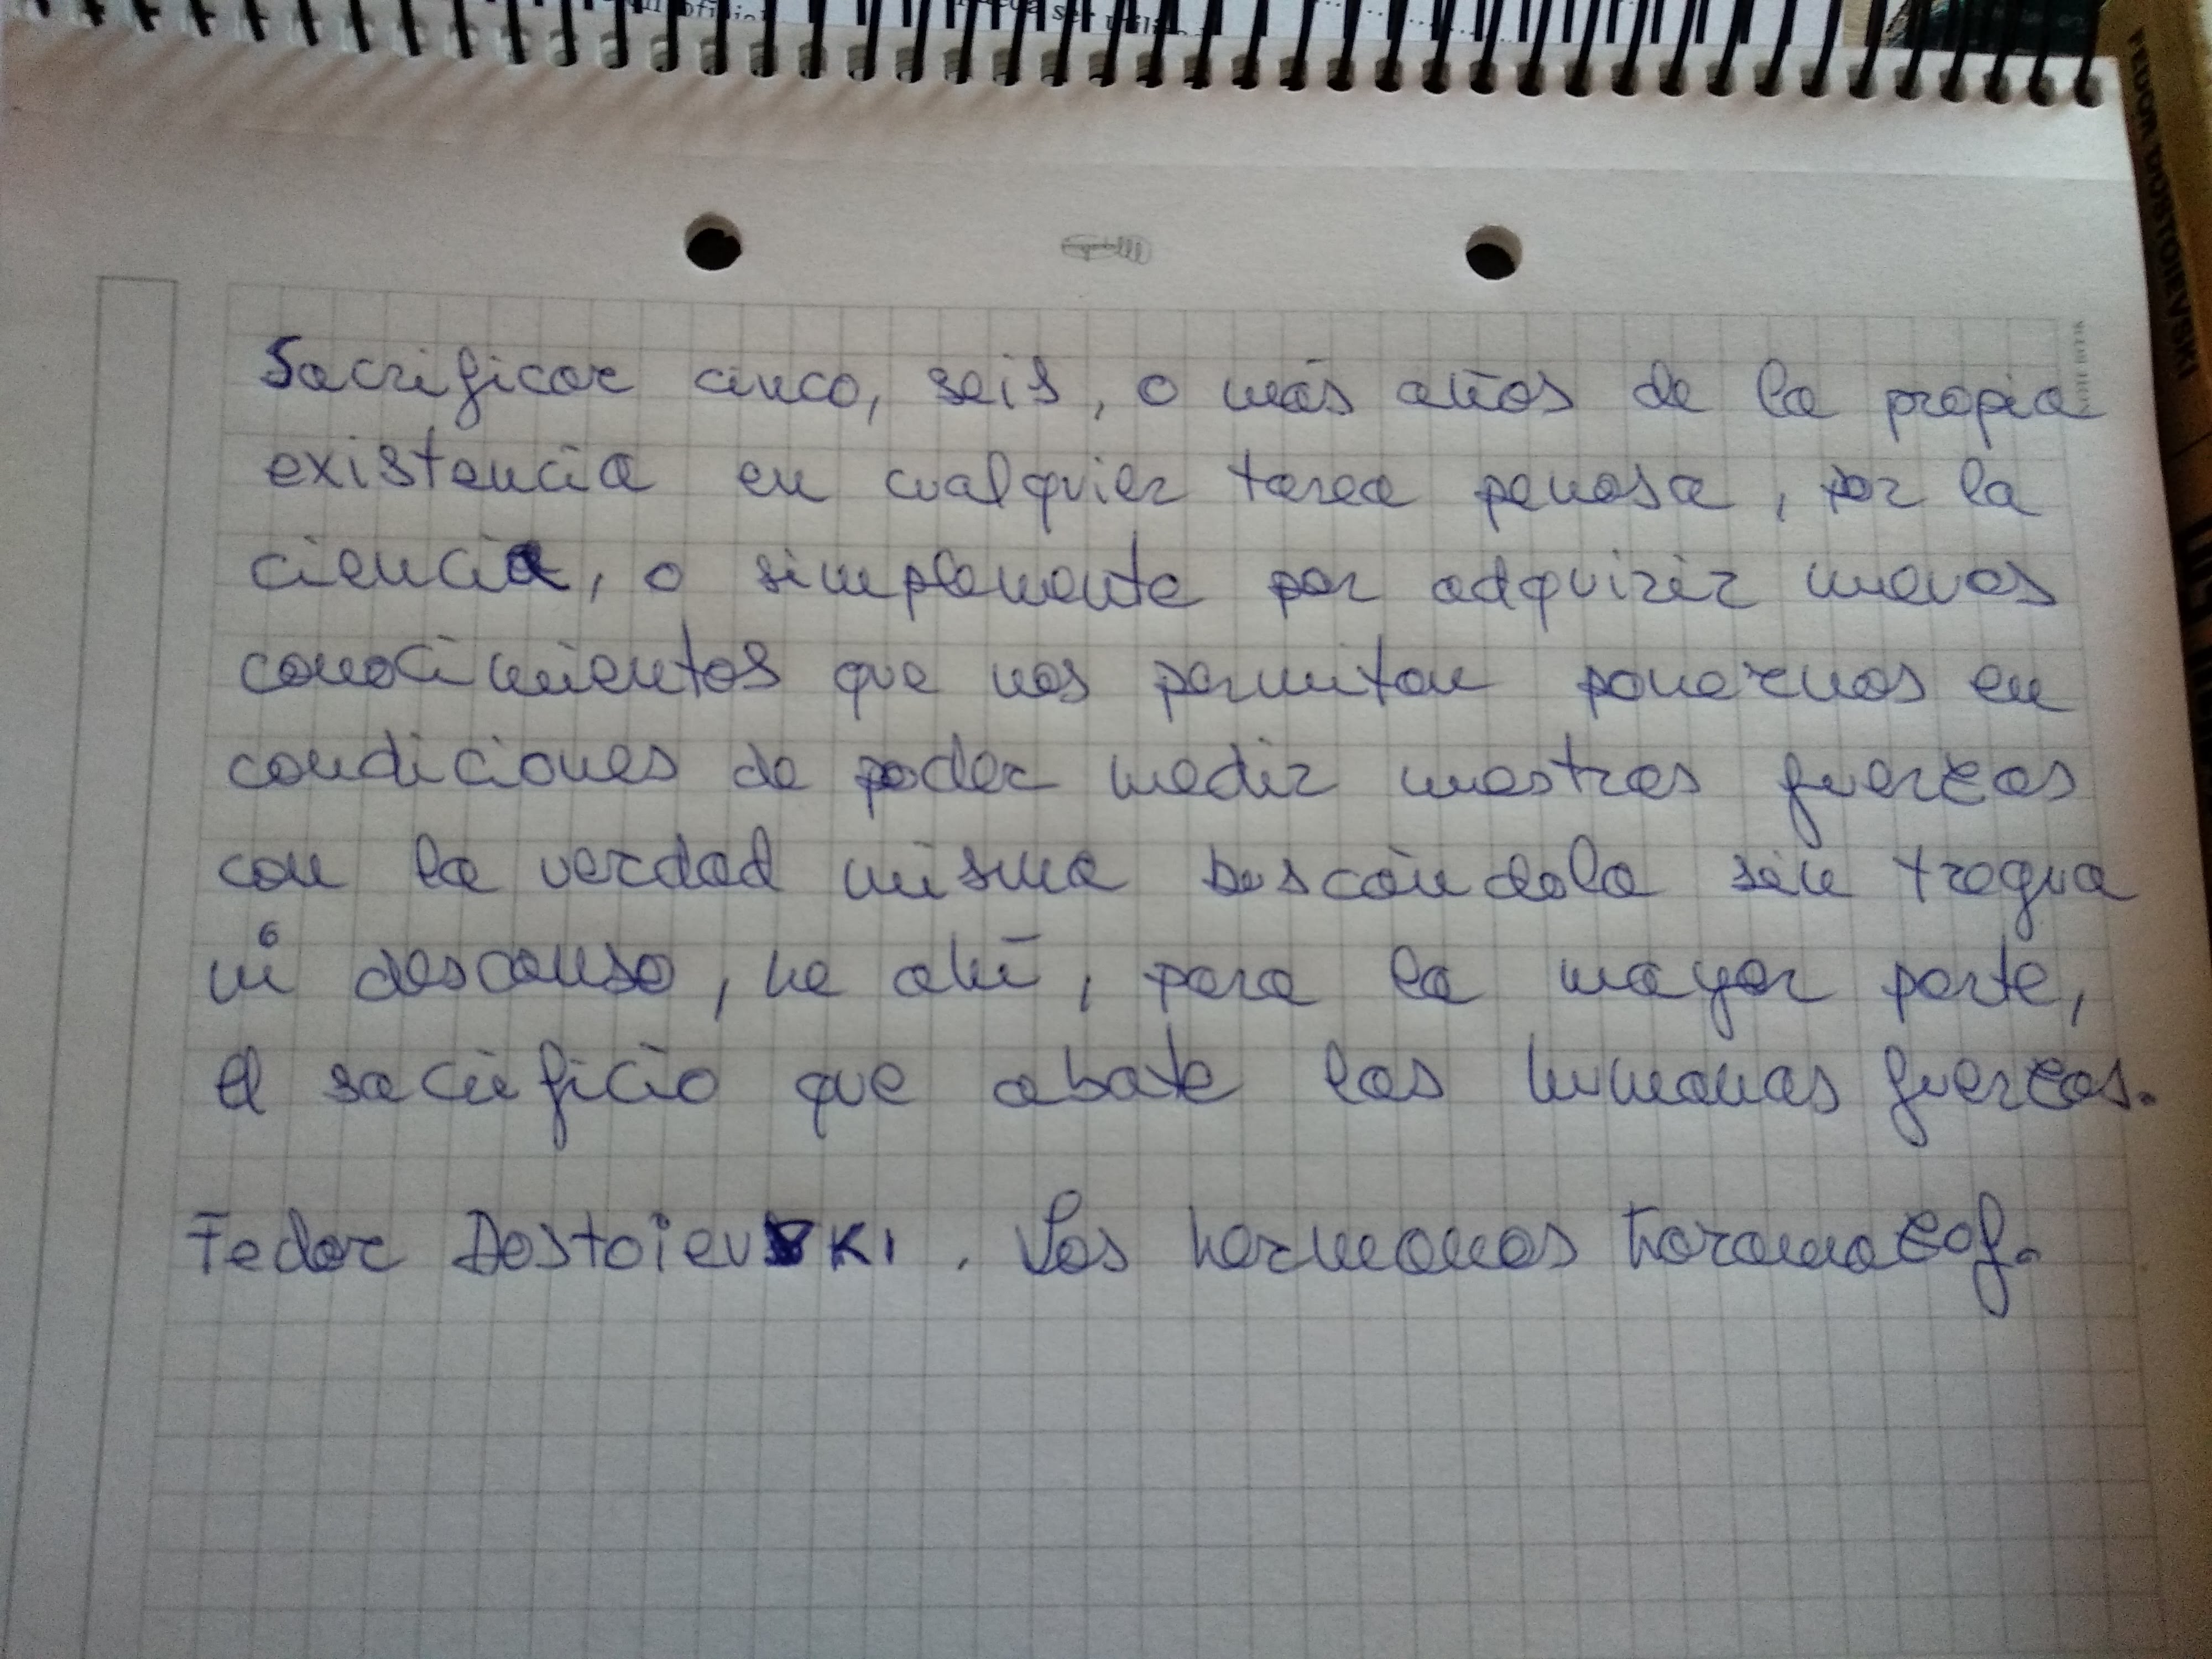 Sacrificar cinco, seis, o más años de la propia
existencia en cualquier tarea penosa, por la
ciencia, o simplemente por adquirir nuevos
conocimientos que nos permitan ponernos en
condiciones de poder medir nuestras fuerzas
con la verdad misma buscándola sin tregua
ni descanso, he ahí, para la mayor parte,
el sacrificio que abate las humanas fuerzas.
Fedor Dostoievski. Los hermanos Karamazof.
NOTE BOOK
FEDOR DOSTOIEVSKI